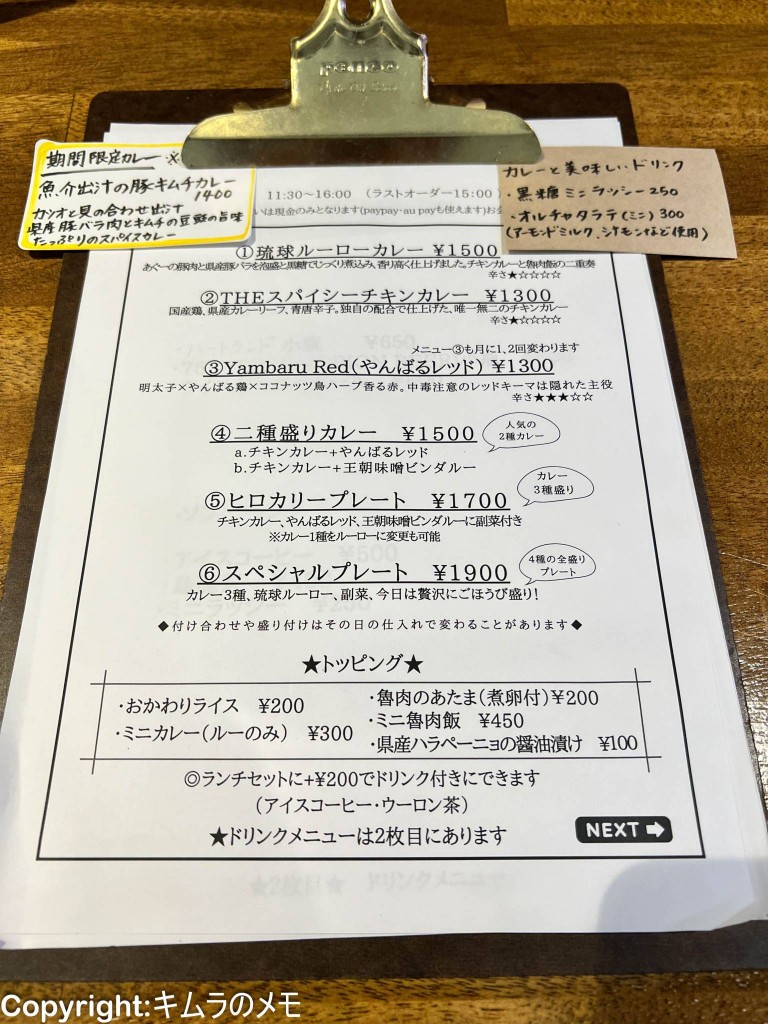 期間限定カレー ※
魚介出汁の豚キムチカレー
1400
カツオと貝の合わせ出汁
県産豚バラ肉とキムチの豆鼓の旨味
たっぷりのスパイスカレー
カレーと美味しいドリンク
・黒糖ミニラッシー 250
・オルチャタラテ(ミニ) 300
(アーモンドミルク、シナモンなど使用)
11:30～16:00 (ラストオーダー15:00
いは現金のみとなります(paypay・au payも使えます)お会
①琉球ルーローカレー ¥1500
あぐーの豚肉と県産豚バラを泡盛と黒糖でじっくり煮込み、香り高く仕上げました。チキンカレーと魯肉飯の二重奏
辛さ★☆☆☆☆
②THEスパイシーチキンカレー ¥1300
国産鶏、県産カレーリーフ、青唐辛子。独自の配合で仕上げた、唯一無二のチキンカレー
辛さ★☆☆☆☆
メニュー③も月に1、2回変わります
③Yambaru Red(やんばるレッド) ¥1300
明太子×やんばる鶏×ココナッツ島ハーブ香る赤。中毒注意のレッドキーマは隠れた主役
辛さ★★★☆☆
④二種盛りカレー ¥1500
人気の
2種カレー
a.チキンカレー+やんばるレッド
b.チキンカレー+王朝味噌ビンダルー
⑤ヒロカリープレート ¥1700
カレー
3種盛り
チキンカレー、やんばるレッド、王朝味噌ビンダルーに副菜付き
※カレー1種をルーローに変更も可能
⑥スペシャルプレート ¥1900
4種の全盛り
プレート
カレー3種、琉球ルーロー、副菜、今日は贅沢にごほうび盛り!
◆付け合わせや盛り付けはその日の仕入れで変わることがあります◆
★トッピング★
・おかわりライス ¥200
・ミニカレー(ルーのみ) ¥300
・魯肉のあたま(煮卵付)¥200
・ミニ魯肉飯 ¥450
・県産ハラペーニョの醤油漬け ¥100
◎ランチセットに+¥200でドリンク付きにできます
(アイスコーヒー・ウーロン茶)
★ドリンクメニューは2枚目にあります
NEXT
Copyright:キムラのメモ